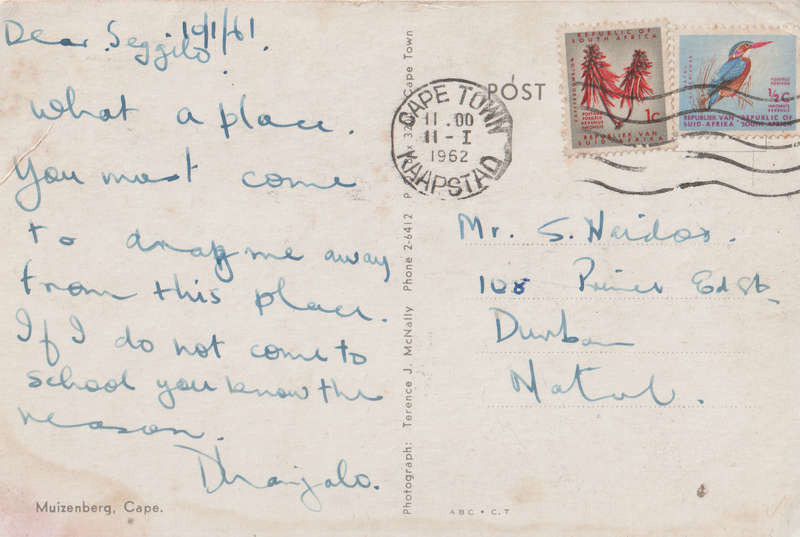 Dear Seggilo 10/1/61.
What a place.
You must come
to drag me away
from this place.
If I do not come to
school you know the
reason.
Muizenberg, Cape.
Photograph: Terence J. McNally Phone 2-6412 Cape Town
POST
CAPE TOWN
11.00
11-I
1962
KAAPSTAD
REPUBLIC OF
SOUTH AFRICA
1c
POSTAGE
REPUBLIEK VAN
SUID-AFRIKA
½c
REPUBLIEK VAN REPUBLIC OF
SUID-AFRIKA SOUTH AFRICA
Mr. S. Naidoo.
108 Prince Ed St.
Durban
Natal.
ABC • C.7